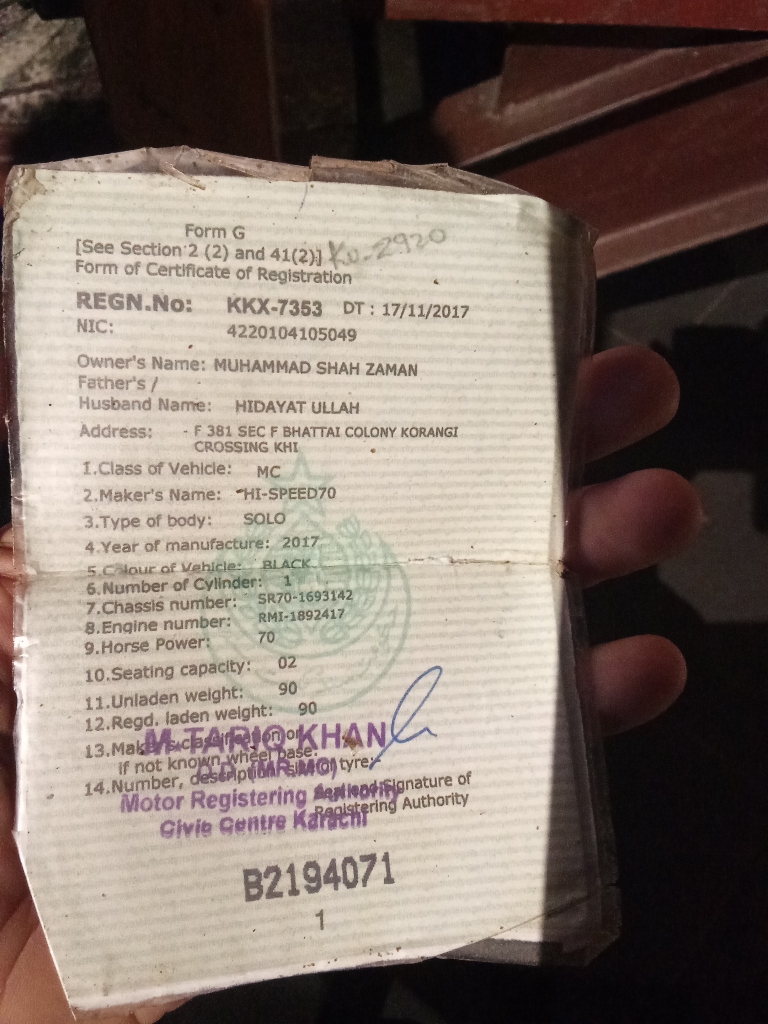 Form G
[See Section 2 (2) and 41(2)]
Form of Certificate of Registration
REGN.No: KKX-7353 DT : 17/11/2017
NIC: 4220104105049
Owner's Name: MUHAMMAD SHAH ZAMAN
Father's /
Husband Name: HIDAYAT ULLAH
Address: - F 381 SEC F BHATTAI COLONY KORANGI
CROSSING KHI
1.Class of Vehicle: MC
2.Maker's Name: HI-SPEED70
3.Type of body: SOLO
4.Year of manufacture: 2017
5.Colour of Vehicle: BLACK
6.Number of Cylinder: 1
7.Chassis number: SR70-1693142
8.Engine number: RMI-1892417
9.Horse Power: 70
10.Seating capacity: 02
11.Unladen weight: 90
12.Regd. laden weight: 90
M.TARIQ KHAN
13.Maker's classification or
if not known wheel base.
(MR-MC)
14.Number, description, size of tyre.
Seal and Signature of
Motor Registering Authority
Registering Authority
Civic Centre Karachi
B2194071
1